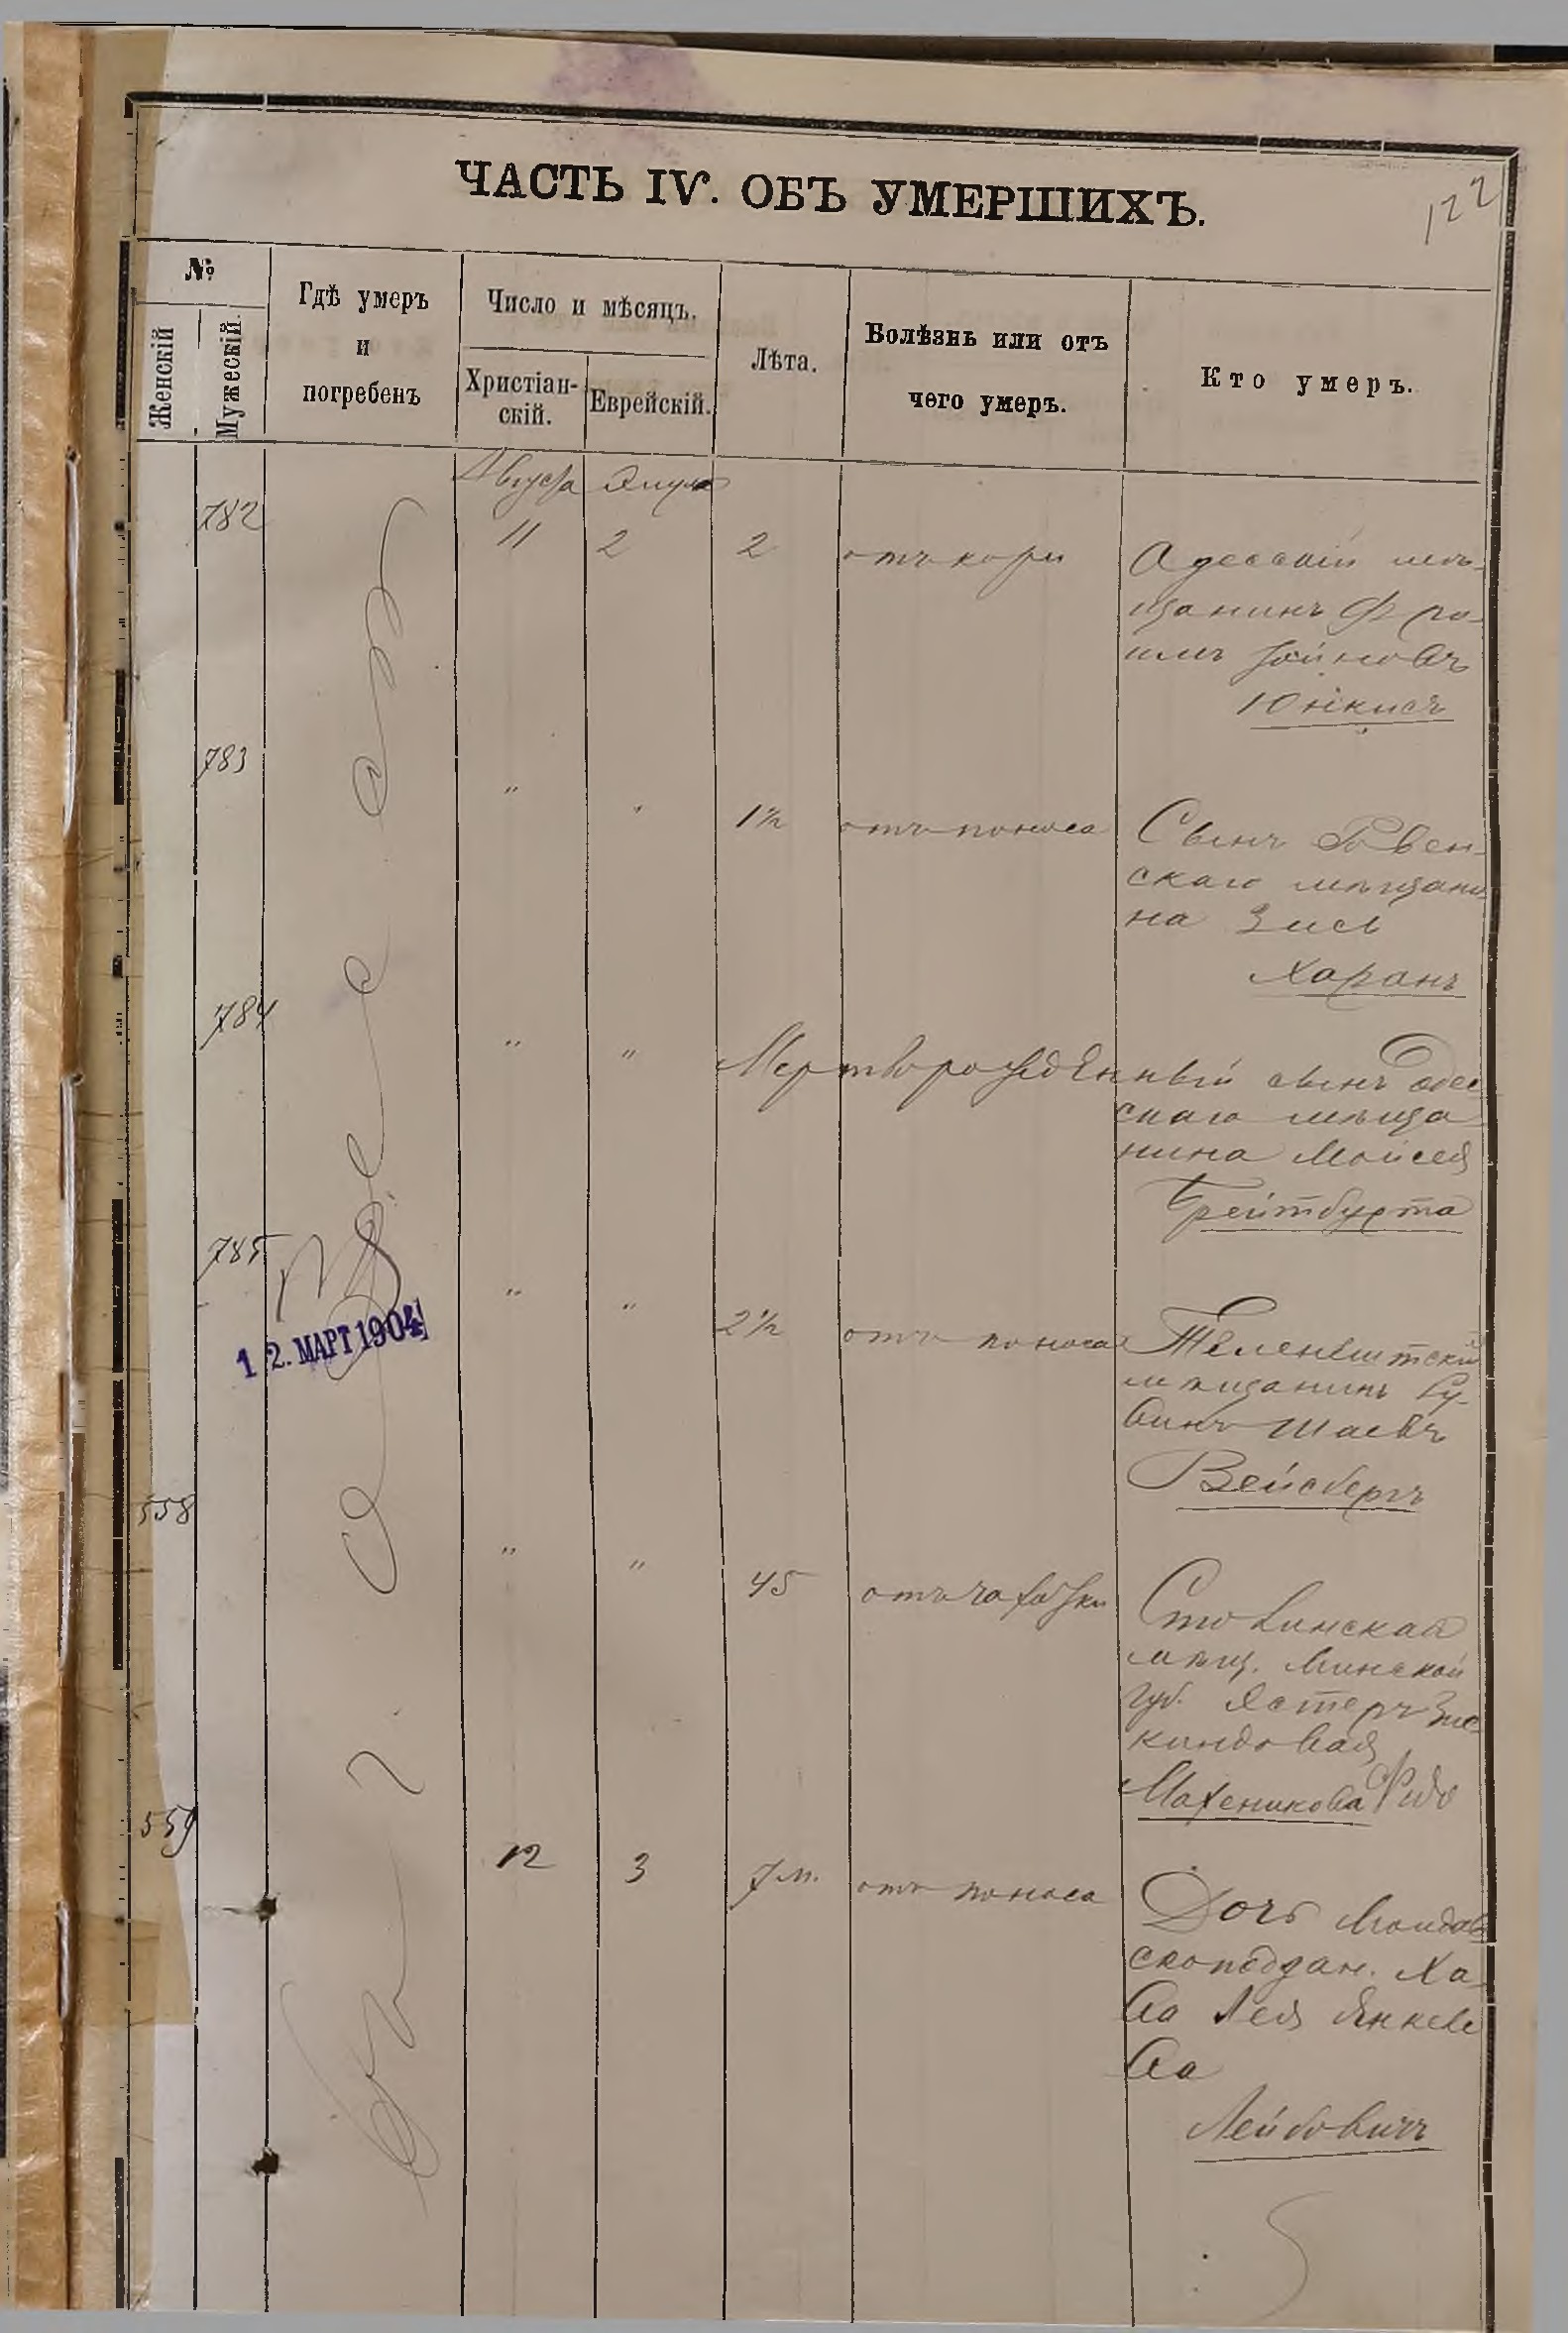 ЧАСТЬ IV. ОБЪ УМЕРШИХЪ.
122
№
Женскій
Мужескій.
Гдѣ умеръ
и
погребенъ
Число и мѣсяцъ.
Христіан-
скій.
Еврейскій.
Лѣта.
Болѣзнь или отъ
чего умеръ.
Кто умеръ.
Августа
782
11
2
2
отъ кори
Одесскій мѣ-
щанинъ Фро-
имъ
Юнкисъ
783
"
"
1½
отъ поноса
Сынъ Ровен-
скаго мѣщани-
на Зись
Харанъ
784
"
"
Мертворожденный сынъ одес
скаго мѣща
нина Мойсея
Брейтбурта
785
12. МАРТ 1904
"
"
2½
отъ поноса
Теленештскій
мѣщанинъ Ру-
винъ Шаевъ
Вейсбергъ
558
"
"
45
отъ чахотки
Столинская
мѣщ. Минской
губ. Эстеръ Зис
киндовая
Махеникова
559
12
3
7 м.
отъ поноса
Дочь Молдав
скоподдан. Ха-
ва Лея Янкеле
ва
Лейбовичъ
въ г. Одессѣ